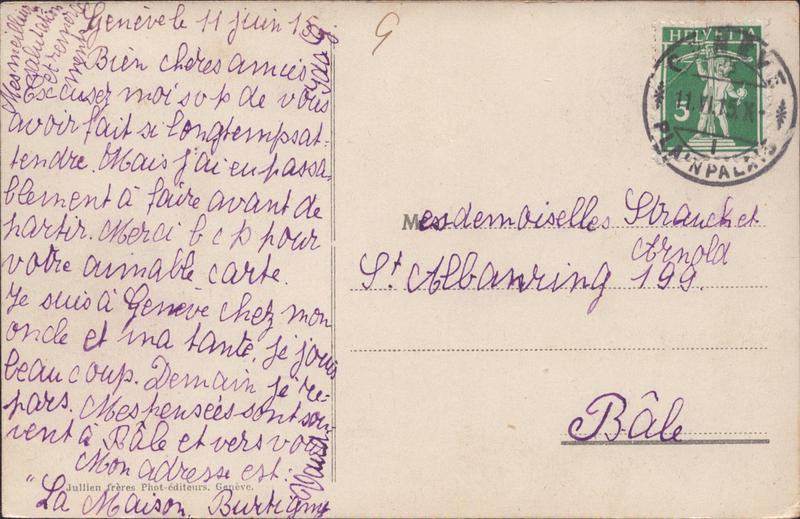 Genève le 11 juin 15
Bien chères amies
Excusez moi s v p de vous
avoir fait si longtemps at-
tendre. Mais j'ai eu passa-
blement à faire avant de
partir. Merci b c p pour
votre aimable carte.
Je suis à Genève chez mon
oncle et ma tante. Je jouis
beaucoup. Demain je re-
pars. Mes pensées sont sou-
vent à Bâle et vers vous
Mon adresse est:
"La Maison, Burtigny
Vaud
Mes meilleures
salutations
et remer-
ciements
Jullien frères Phot-éditeurs. Genève.
HELVETIA
5
GENÈVE
11.VI.15.X
1
PLAINPALAIS
Mesdemoiselles Strauch et
Arnold
St Albanring 199.
Bâle